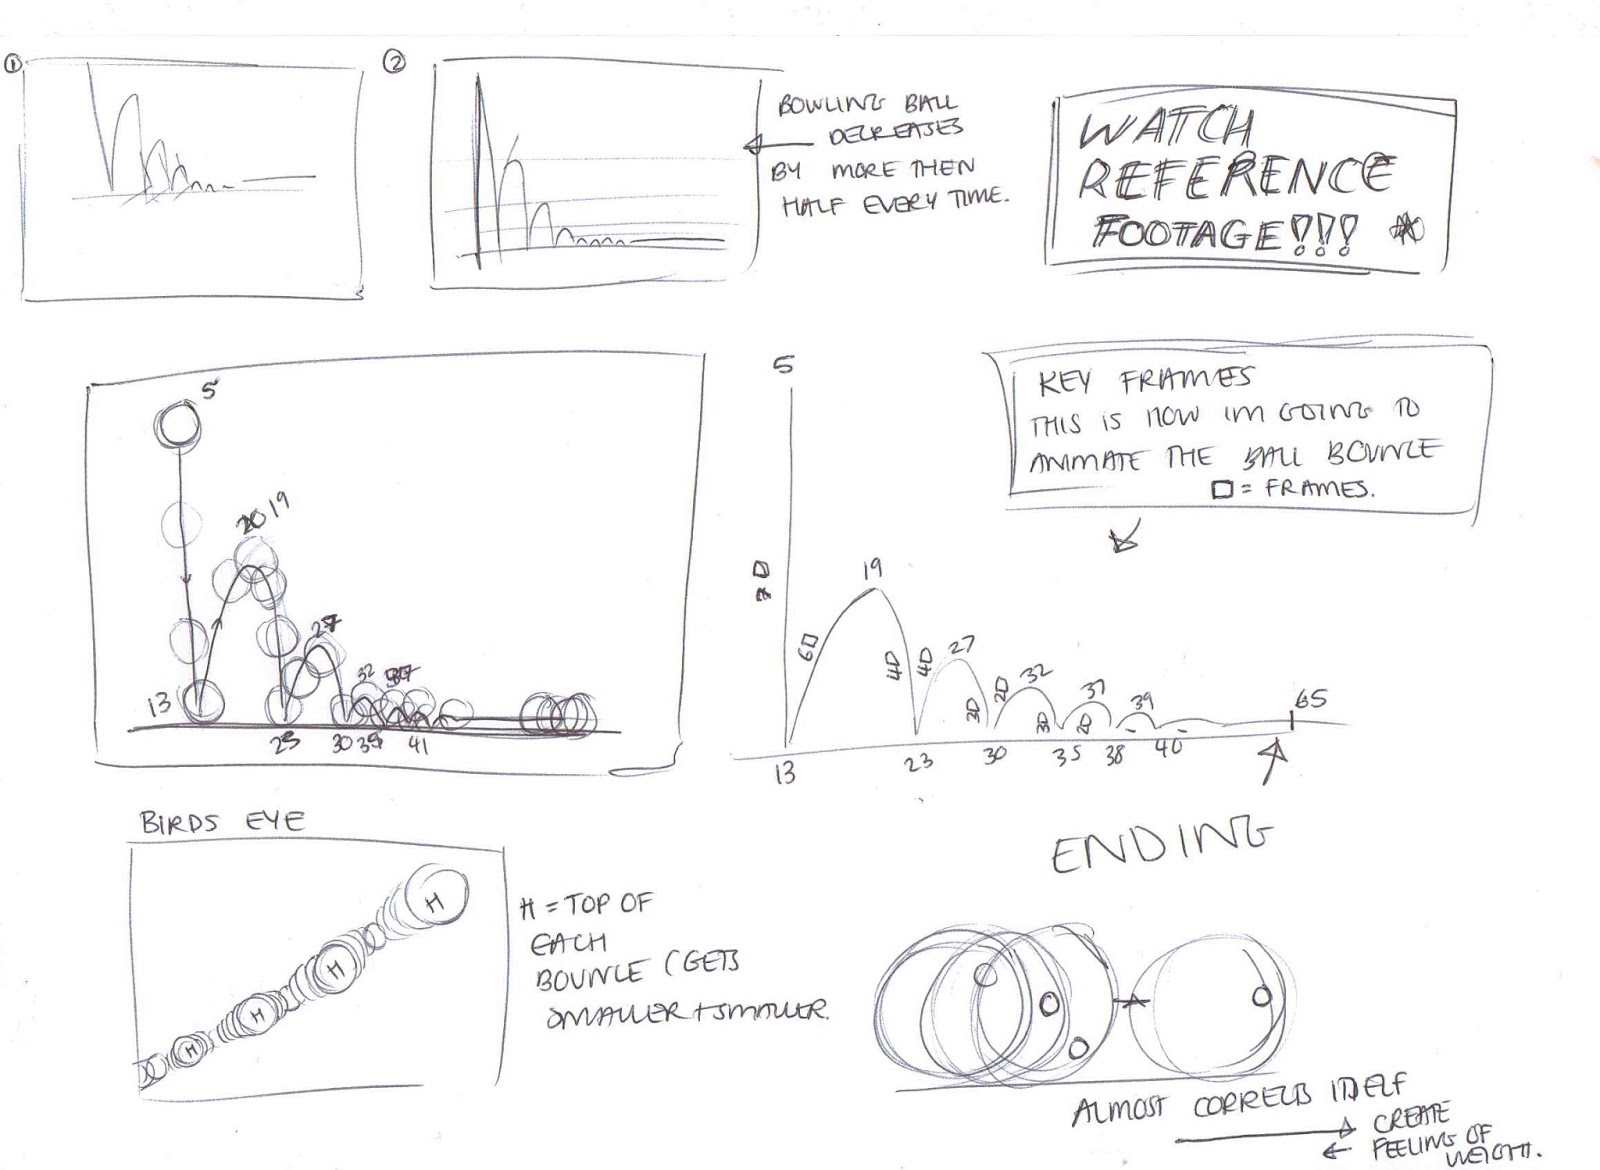 ①
②
BOWLING BALL
DECREASES
BY MORE THEN
HALF EVERY TIME.
WATCH
REFERENCE
FOOTAGE!!!
5
19
27
32
37
13
25
30 35
41
KEY FRAMES
THIS IS HOW IM GOING TO
ANIMATE THE BALL BOUNCE
□ = FRAMES.
5
7□
19
6□
4□
4□
27
3□
2□
32
3□
37
2□
39
65
13
23
30
35
38
40
BIRDS EYE
H
H
H
H
H = TOP OF
EACH
BOUNCE (GETS
SMALLER + SMALLER.
ENDING
ALMOST CORRECTS ITSELF
CREATE
FEELING OF
WEIGHT.